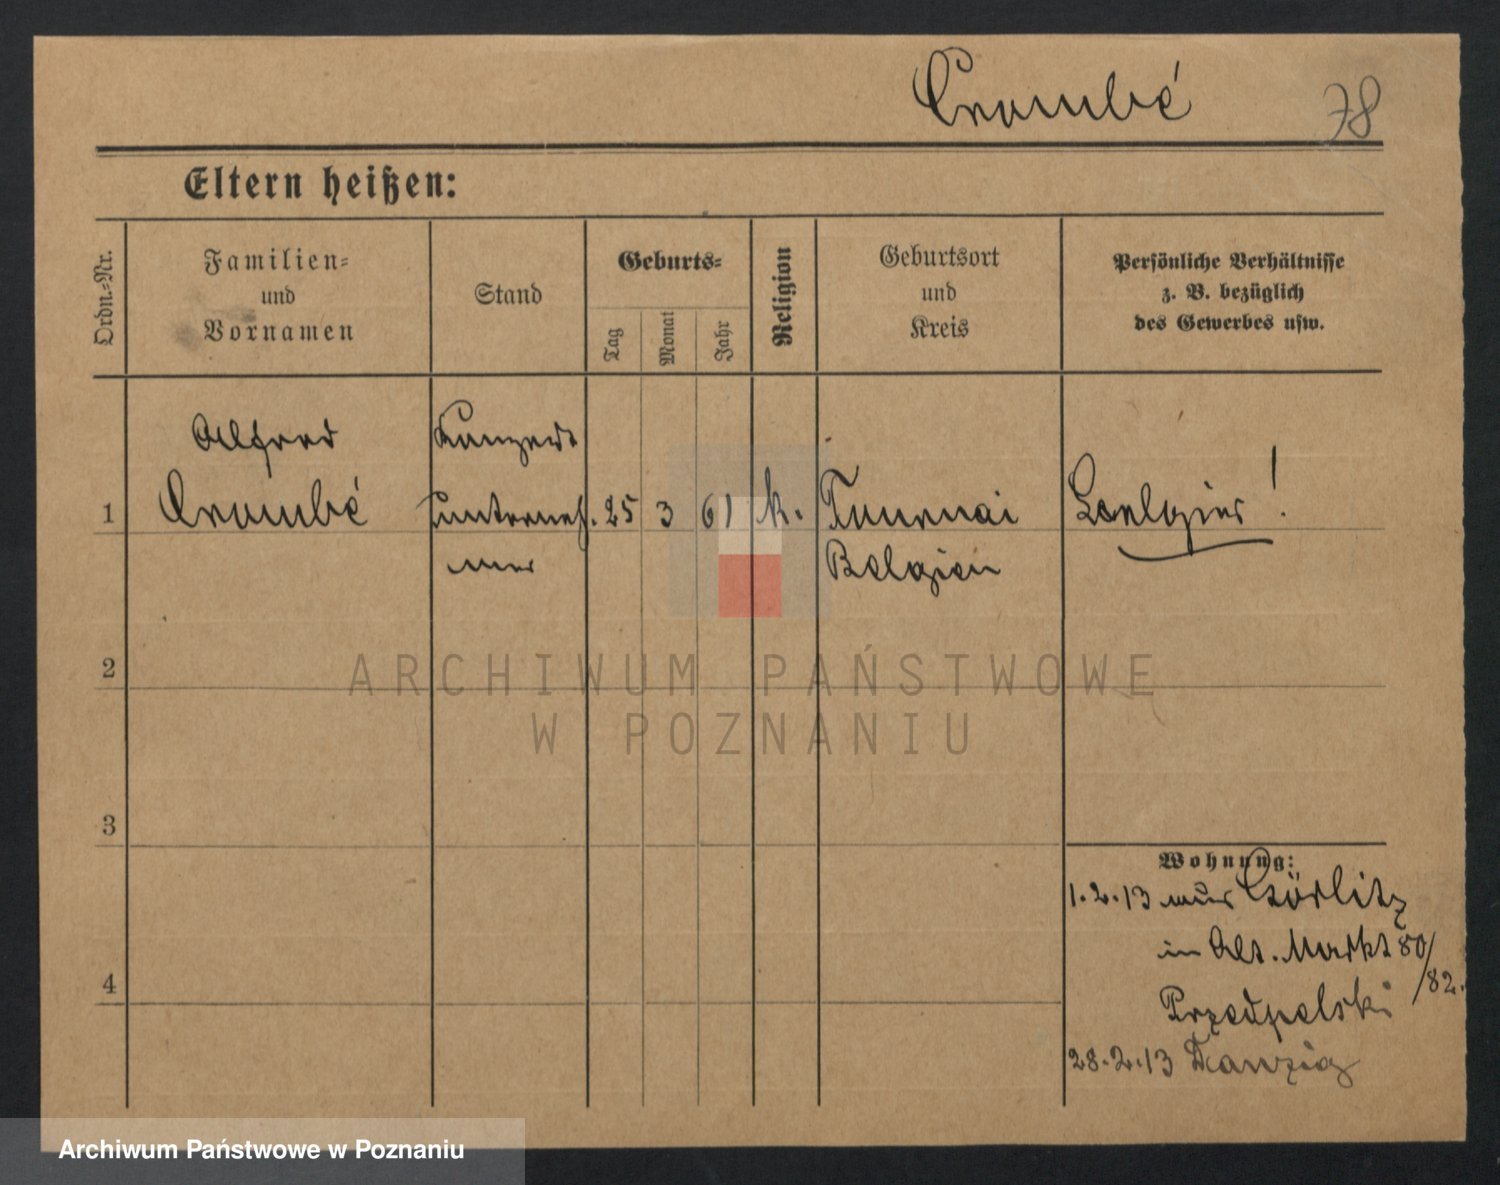 Crombé 78
Eltern heißen:
Ordn.-Nr.
Familien-
und
Vornamen
Stand
Geburts-
Tag
Monat
Jahr
Religion
Geburtsort
und
Kreis
Persönliche Verhältnisse
z. B. bezüglich
des Gewerbes usw.
Alfred Konzert
1 Crombé unterneh. 25 3 61 k. Tournai Belgier!
mer Belgien
2
3
4
Wohnung:
1.2.13 aus Görlitz
in Alt. Markt 80/
/82.
Przedpelski
28.2.13 Danzig
ARCHIWUM PAŃSTWOWE
W POZNANIU
Archiwum Państwowe w Poznaniu